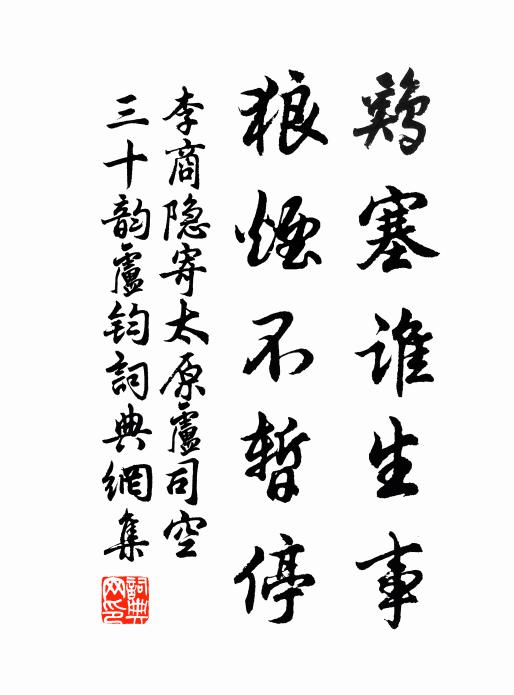 鷄塞誰生事
狼煙不暫停
李商隐寄太原盧司空
三十韵盧钧詞典網集